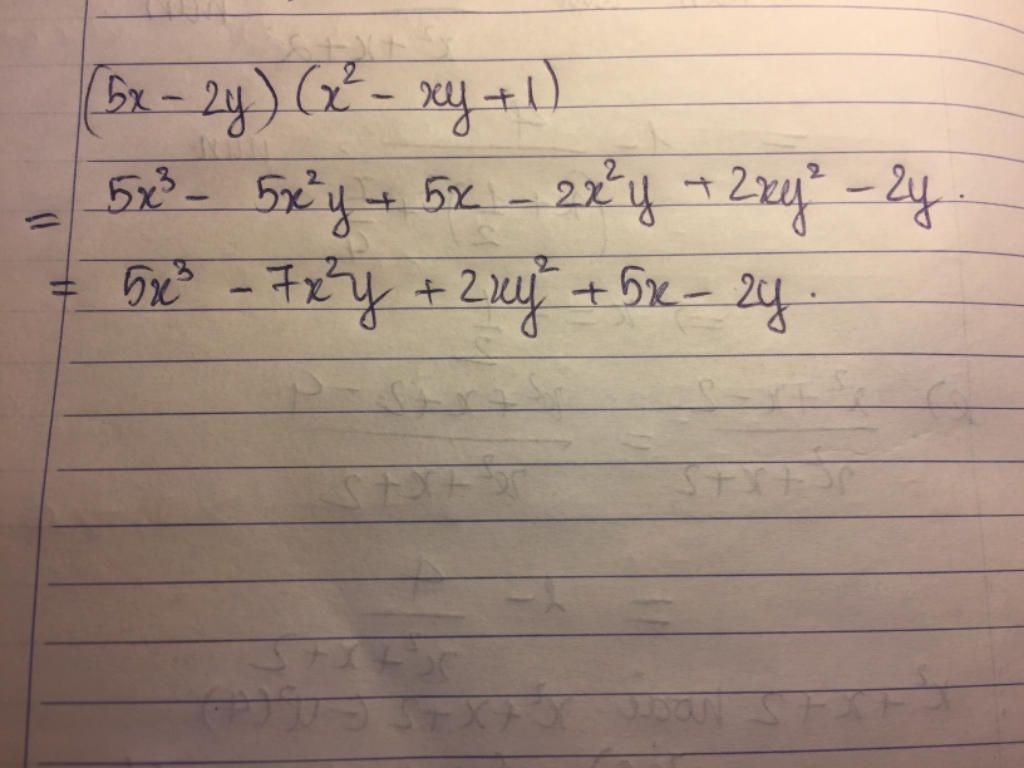 (5x - 2y) (x² - xy + 1)
= 5x³ - 5x²y + 5x - 2x²y + 2xy² - 2y.
= 5x³ - 7x²y + 2xy² + 5x - 2y.